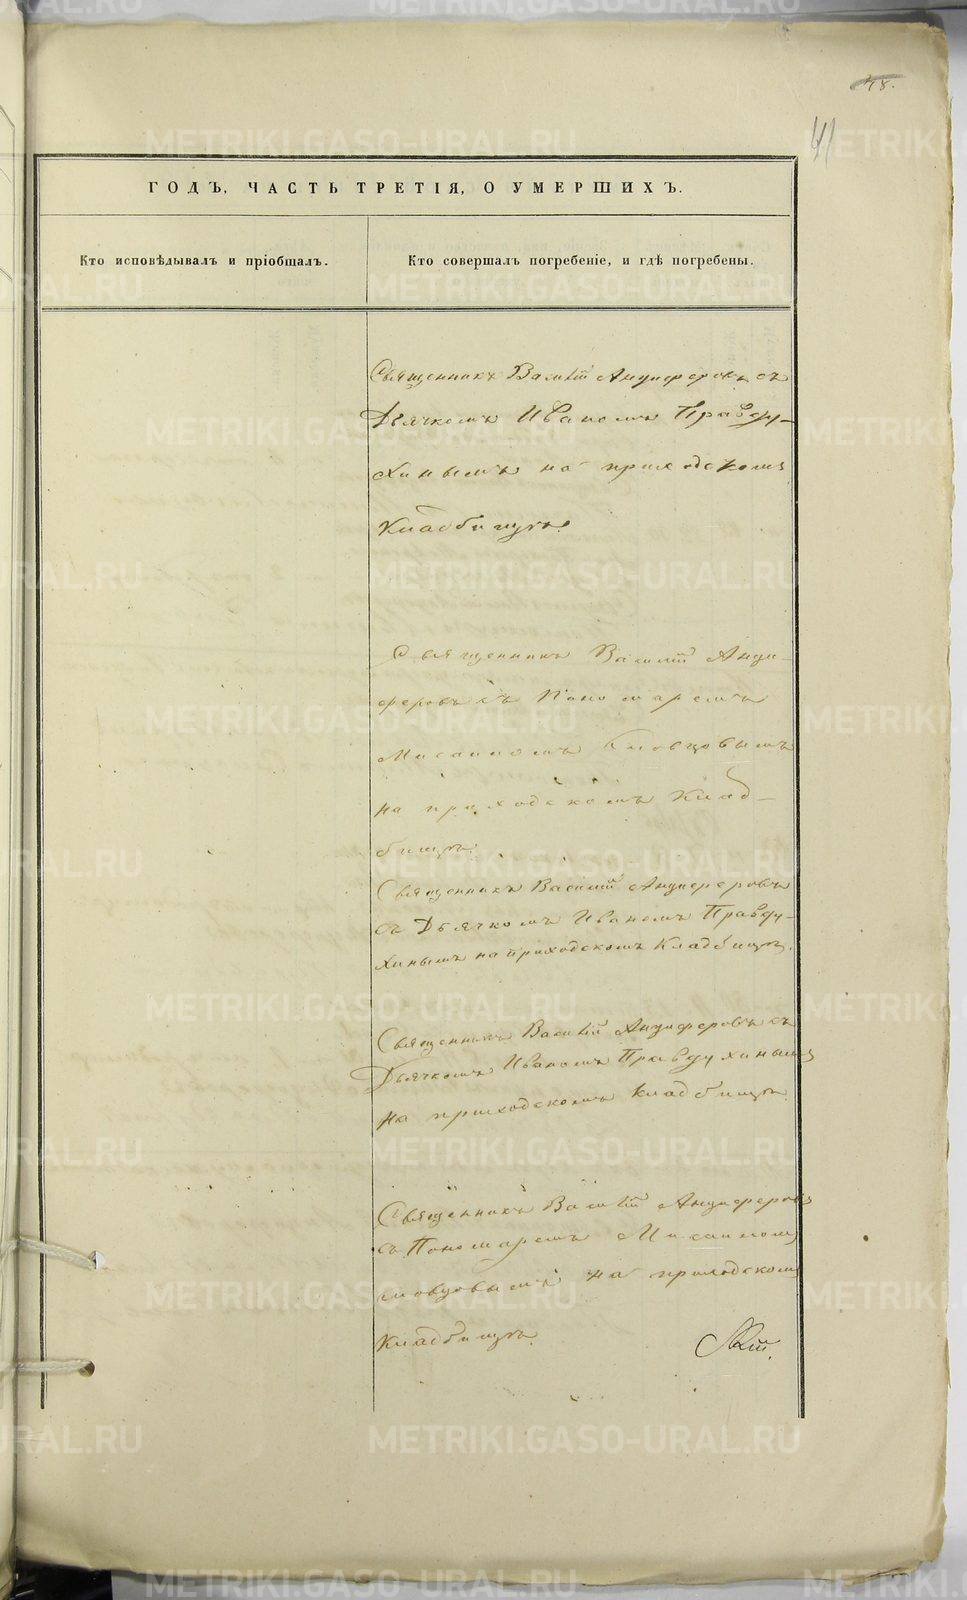 48.
41
ГОДЪ, ЧАСТЬ ТРЕТІЯ, О УМЕРШИХЪ.
Кто исповѣдывалъ и пріобщалъ.
Кто совершалъ погребеніе, и гдѣ погребены.
Священникъ Василій Анциферовъ съ
Дьячкомъ Иваномъ Правду-
хинымъ на приходскомъ
Кладбищѣ.
Священникъ Василій Анци-
феровъ съ Пономаремъ
на приходскомъ Клад-
бищѣ.
Священникъ Василій Анциферовъ
съ Дьячкомъ Иваномъ Правду-
хинымъ на приходскомъ Кладбищѣ.
Священникъ Василій Анциферовъ съ
Дьячкомъ Иваномъ Правдухинымъ
на приходскомъ Кладбищѣ.
Священникъ Василій Анциферовъ
съ Пономаремъ
на приходскомъ
Кладбищѣ.
METRIKI.GASO-URAL.RU